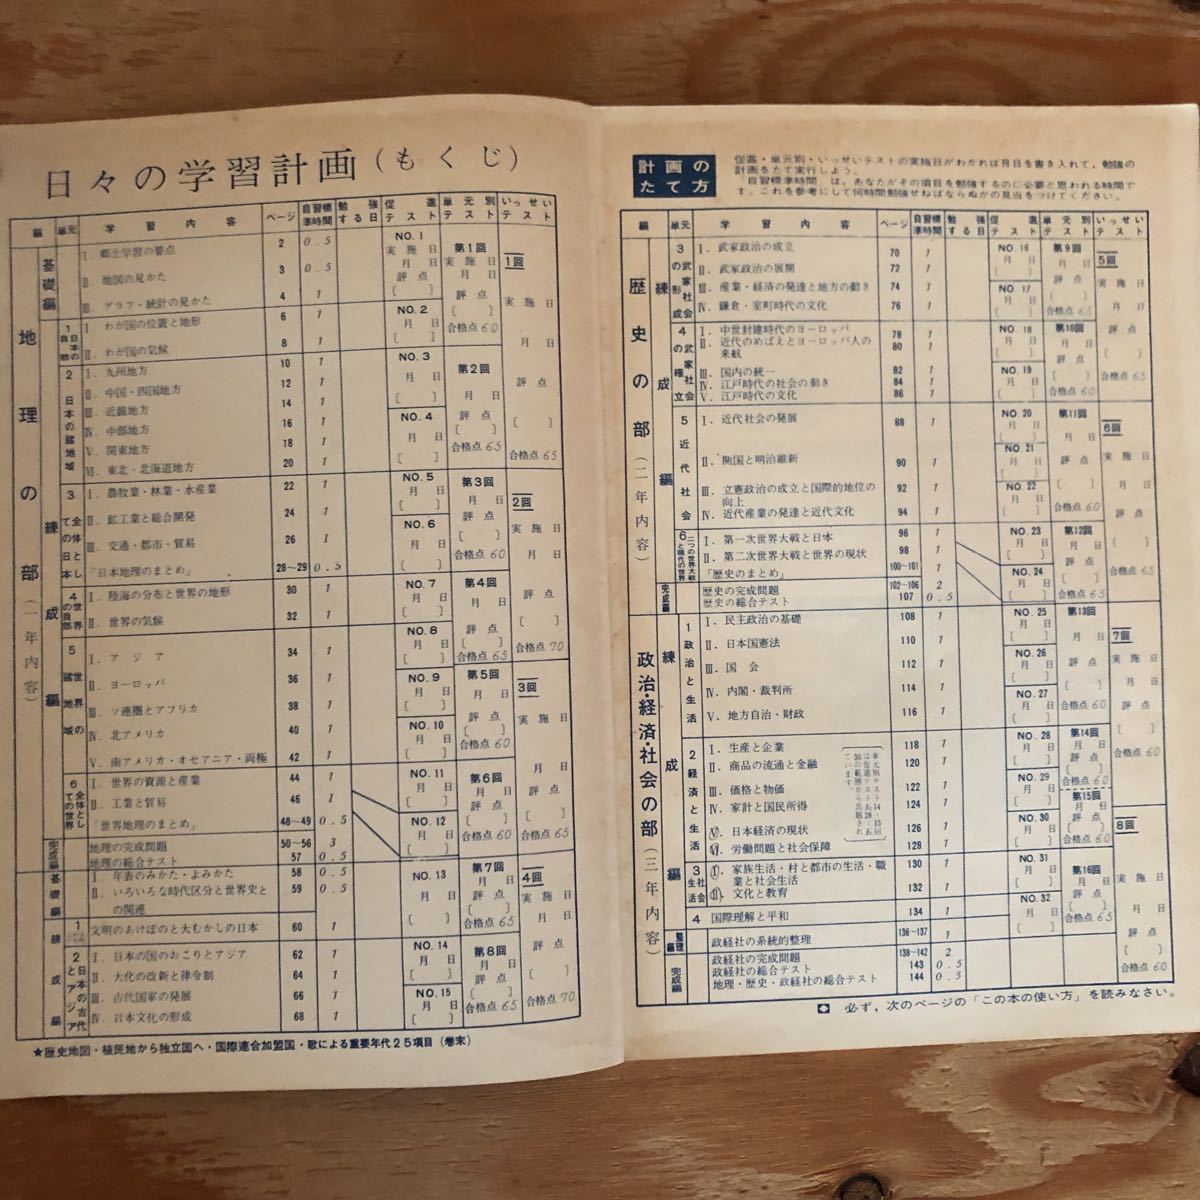 日々の学習計画(もくじ)
編 単元 学習内容 ページ 自習標準時間 勉強する日 促進テスト 単元別テスト いっせいテスト
地理の部(一年内容)
基礎編
I. 郷土学習の要点 2 0.5
II. 地図の見かた 3 0.5
III. グラフ・統計の見かた 4 1
練成編
1 日本の自然
I. わが国の位置と地形 6 1
II. わが国の気候 8 1
2 日本の諸地域
I. 九州地方 10 1
II. 中国・四国地方 12 1
III. 近畿地方 14 1
IV. 中部地方 16 1
V. 関東地方 18 1
VI. 東北・北海道地方 20 1
3 全体としての日本
I. 農牧業・林業・水産業 22 1
II. 鉱工業と総合開発 24 1
III. 交通・都市・貿易 26 1
「日本地理のまとめ」 28～29 0.5
4 世界の自然
I. 陸海の分布と世界の地形 30 1
II. 世界の気候 32 1
5 世界の諸地域
I. アジア 34 1
II. ヨーロッパ 36 1
III. ソ連圏とアフリカ 38 1
IV. 北アメリカ 40 1
V. 南アメリカ・オセアニア・両極 42 1
6 全体としての世界
I. 世界の資源と産業 44 1
II. 工業と貿易 46 1
「世界地理のまとめ」 48～49 0.5
完成編
地理の完成問題 50～56 3
地理の総合テスト 57 0.5
基礎編
I. 年表のみかた・よみかた 58 0.5
II. いろいろな時代区分と世界史との関連 59 0.5
練成編
1 文明のあけぼのと大むかしの日本 60 1
2 日本の古代とアジア
I. 日本の国のおこりとアジア 62 1
II. 大化の改新と律令制 64 1
III. 古代国家の発展 66 1
IV. 日本文化の形成 68 1
NO.1 実施日 月 日 評点 [ ]
NO.2 月 日 [ ]
NO.3 月 日 [ ]
NO.4 月 日 [ ]
NO.5 月 日 [ ]
NO.6 月 日 [ ]
NO.7 月 日 [ ]
NO.8 月 日 [ ]
NO.9 月 日 [ ]
NO.10 月 日 [ ]
NO.11 月 日 [ ]
NO.12 月 日 [ ]
NO.13 月 日 [ ]
NO.14 月 日 [ ]
NO.15 月 日 [ ]
第1回 実施日 月 日 評点 [ ] 合格点60
第2回 月 日 評点 [ ] 合格点65
第3回 月 日 評点 [ ] 合格点60
第4回 月 日 評点 [ ] 合格点65
第5回 月 日 評点 [ ] 合格点60
第6回 月 日 評点 [ ] 合格点60
第7回 月 日 評点 [ ] 合格点65
第8回 月 日 評点 [ ] 合格点65
1回 実施日 月 日 評点 [ ] 合格点65
2回 実施日 月 日 評点 [ ] 合格点70
3回 実施日 月 日 評点 [ ] 合格点60
4回 実施日 月 日 評点 [ ] 合格点70
★歴史地図・植民地から独立国へ・国際連合加盟国・歌による重要年代25項目(巻末)
計画のたて方
促進・単元別・いっせいテストの実施日がわかれば月日を書き入れて,勉強の
計画をたて実行しよう。
「自習標準時間」は、あなたがその項目を勉強するのに必要と思われる時間で
す。これを参考にして何時間勉強せねばならぬかの見当をつけてください。
編 単元 学習内容 ページ 自習標準時間 勉強する日 促進テスト 単元別テスト いっせいテスト
歴史の部(二年内容)
練成編
3 武家社会の形成
I. 武家政治の成立 70 1
II. 武家政治の展開 72 1
III. 産業・経済の発達と地方の動き 74 1
IV. 鎌倉・室町時代の文化 76 1
4 武家社会の確立
I. 中世封建時代のヨーロッパ 78 1
II. 近代のめばえとヨーロッパ人の来航 80 1
III. 国内の統一 82 1
IV. 江戸時代の社会の動き 84 1
V. 江戸時代の文化 86 1
5 近代社会
I. 近代社会の発展 88 1
II. 開国と明治維新 90 1
III. 立憲政治の成立と国際的地位の向上 92 1
IV. 近代産業の発達と近代文化 94 1
6 二つの世界大戦と現代の世界
I. 第一次世界大戦と日本 96 1
II. 第二次世界大戦と世界の現状 98 1
「歴史のまとめ」 100～101 1
完成編
歴史の完成問題 102～106 2
歴史の総合テスト 107 0.5
政治・経済・社会の部(三年内容)
練成編
1 政治と生活
I. 民主政治の基礎 108 1
II. 日本国憲法 110 1
III. 国会 112 1
IV. 内閣・裁判所 114 1
V. 地方自治・財政 116 1
2 経済と生活
I. 生産と企業 118 1
II. 商品の流通と金融 120 1
III. 価格と物価 122 1
IV. 家計と国民所得 124 1
V. 日本経済の現状 126 1
VI. 労働問題と社会保障 128 1
3 社会生活
I. 家族生活・村と都市の生活・職業と社会生活 130 1
II. 文化と教育 132 1
4 国際理解と平和 134 1
整理編
政経社の系統的整理 136～137 1
完成編
政経社の完成問題 138～142 2
政経社の総合テスト 143 0.5
地理・歴史・政経社の総合テスト 144 0.5
NO.16 月 日 [ ]
NO.17 月 日 [ ]
NO.18 月 日 [ ]
NO.19 月 日 [ ]
NO.20 月 日 [ ]
NO.21 月 日 [ ]
NO.22 月 日 [ ]
NO.23 月 日 [ ]
NO.24 月 日 [ ]
NO.25 月 日 [ ]
NO.26 月 日 [ ]
NO.27 月 日 [ ]
NO.28 月 日 [ ]
NO.29 月 日 [ ]
NO.30 月 日 [ ]
NO.31 月 日 [ ]
NO.32 月 日 [ ]
第9回 月 日 評点 [ ] 合格点65
第10回 月 日 評点 [ ] 合格点60
第11回 月 日 評点 [ ] 合格点60
第12回 月 日 評点 [ ] 合格点65
第13回 月 日 評点 [ ] 合格点60
第14回 月 日 [ ] 合格点60
第15回 月 日 [ ] 合格点60
第16回 月 日 評点 [ ] 合格点65
5回 実施日 月 日 評点 [ ] 合格点60
6回 実施日 月 日 評点 [ ] 合格点65
7回 実施日 月 日 評点 [ ] 合格点60
8回 実施日 月 日 評点 [ ] 合格点60
◆ 必ず,次のページの「この本の使い方」を読みなさい。